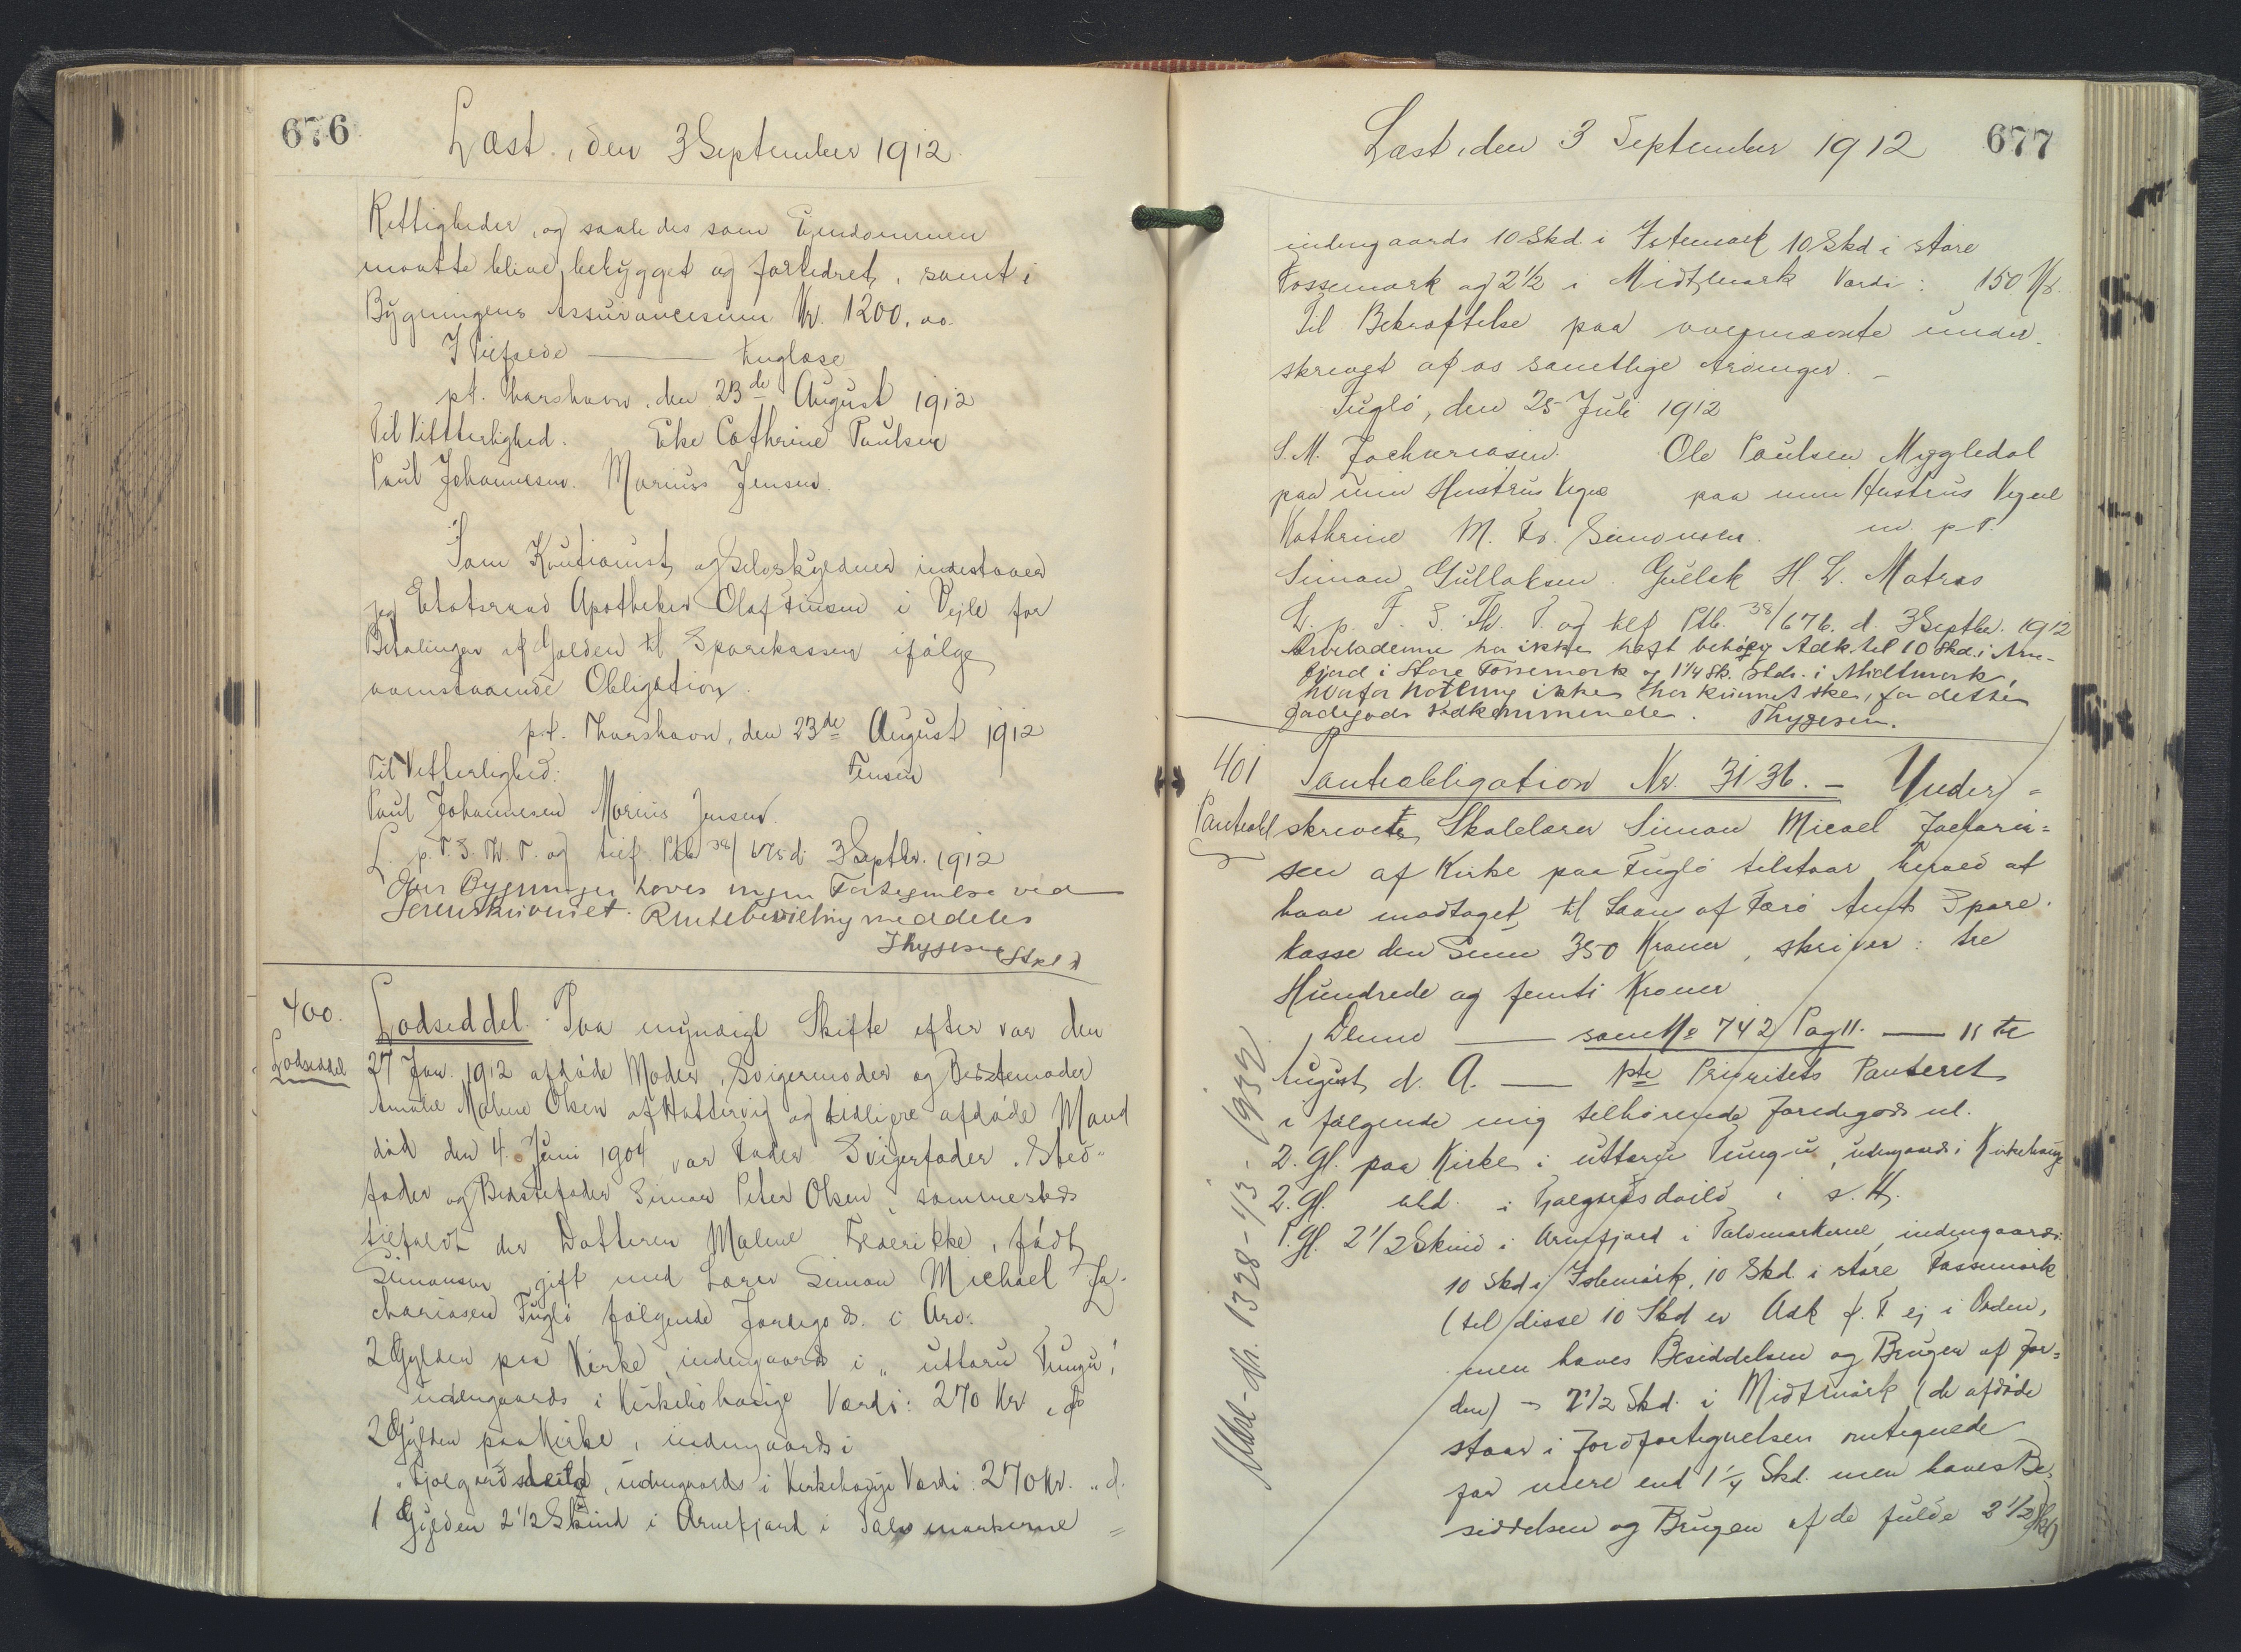 676
Læst, den 3 September 1912.
Rettigheder, og saaledes som Ejendommen
maatte blive bebygget og forbedret, samt i
Bygningens Assurancesum Kr. 1200,00.
I Tilfælde ——— Kuglæse
pt. Thorshavn, den 23de August 1912
Til Vitterlighed. Else Cathrine Paulsen
Paul Johannesen. Marius Jensen.
Som Kautionist og Selvskyldner indestaaer
jeg Etatsraad Apotheker Olaf Finsen i Vejle for
Betalingen af Gælden til Sparekassen ifølge
vanstaaende Obligation.
pt. Thorshavn, den 23de August 1912
Til Vitterlighed: Finsen
Paul Johannesen Marius Jensen.
L. p. F. S. Th. T. og tilf. Ptb 38/675 d. 3 Septbr. 1912
Over Bygningen haves ingen Fortegnelse ved
Sorenskriveriet. Rentebevilling meddeles
Thygesen
400.
Lodseddel
Lodseddel. Paa myndigt Skifte efter vor den
27 Jan. 1912 afdøde Moder, Svigermoder og Bedstemoder
Amalie Malene Olsen af Hattervig og tidligere afdøde Mand
død den 4. Juni 1904 vor Fader Svigerfader, Sted-
fader og Bedstefader Simon Peter Olsen, sammesteds
tilfaldt der Datteren Malene Frederikke, født
Simonsen gift med Lærer Simon Michael Za-
chariasen Fuglø følgende Jordegods i Arv:
2 Gylden paa Kirke, indengaards i "uttaru Tungu",
udengaards i Kirkehauge Værdi: 270 Kr.
2 Gylden paa Kirke, indengaards i
udengaards i Kirkehauge Værdi: 270 Kr.
1 Gylden 2½ Skind i Arnefjord i Talvmarkerne
677
Læst, den 3 September 1912
indengaards 10 Skd. i Istemark 10 Skd i store
Fossemark og 2½ i Midtmark Værdi: 150 Kr.
Til Bekræftelse paa under-
skrevet af os samtlige Arvinger.
Fuglø, den 25 Juli 1912
S. M. Zachariasen. Ole Paulsen Mygledal
paa min Hustrus Vegne paa min Hustrus Vegne
Kathrine M. Fr. Simonsen. m. p. T.
Simon Gullaksen. Gullak H. L. Matras
L. p. F. S. Th. T. og tilf Ptb. 38/676. d. 3 Septbr. 1912
Arveladerne har ikke haft behørig Adk. til 10 Skd. i Arne-
fjord i Store Fossemark og 1¼ Sk. steds. i Midtmark,
hvorfor Notering ikke har kunnet ske, for dette
Jordegods vedkommende. Thygesen.
401
Panteobl
Panteobligation Nr. 3136. — Under-
skrevete Skolelærer Simon Micael Zacharia-
sen af Kirke paa Fuglø tilstaar herved at
have modtaget til Laan af Færø Amts Spare-
kasse den Sum 350 Kroner, skriver: tre
Hundrede og femti Kroner
Denne ——— som No 742 Pag 11. —— 11te
August d. A. —— 1ste Prioritets Panteret
i følgende mig tilhørende Jordegods nl.
2. Gl. paa Kirke i uttaru Tungu, udengaards i Kirkehauge
2. Gl. ibd. i s. H.
1. Gl. 2½ Skind i Arnefjord i Talvmarkerne, indengaards:
10 Skd i Istemark, 10 Skd. i store Fossemark
(til disse 10 Skd er Adk p. T. ej i Orden,
men haves Besiddelsen og Brugen af Jor-
den) 2½ Skd. i Midtmark (de afdøde
staar i Jordfortegnelsen antegnede
for mere end 1¼ Skd. men haves Be-
siddelsen og Brugen af de fulde 2½ Skd)
Udsl. dh. 1328-1/3-1932